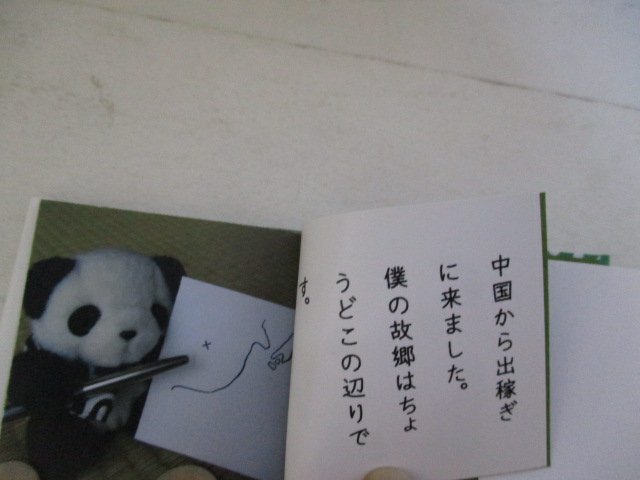 中国から出稼ぎ
に来ました。
僕の故郷はちょ
うどこの辺りで
す。